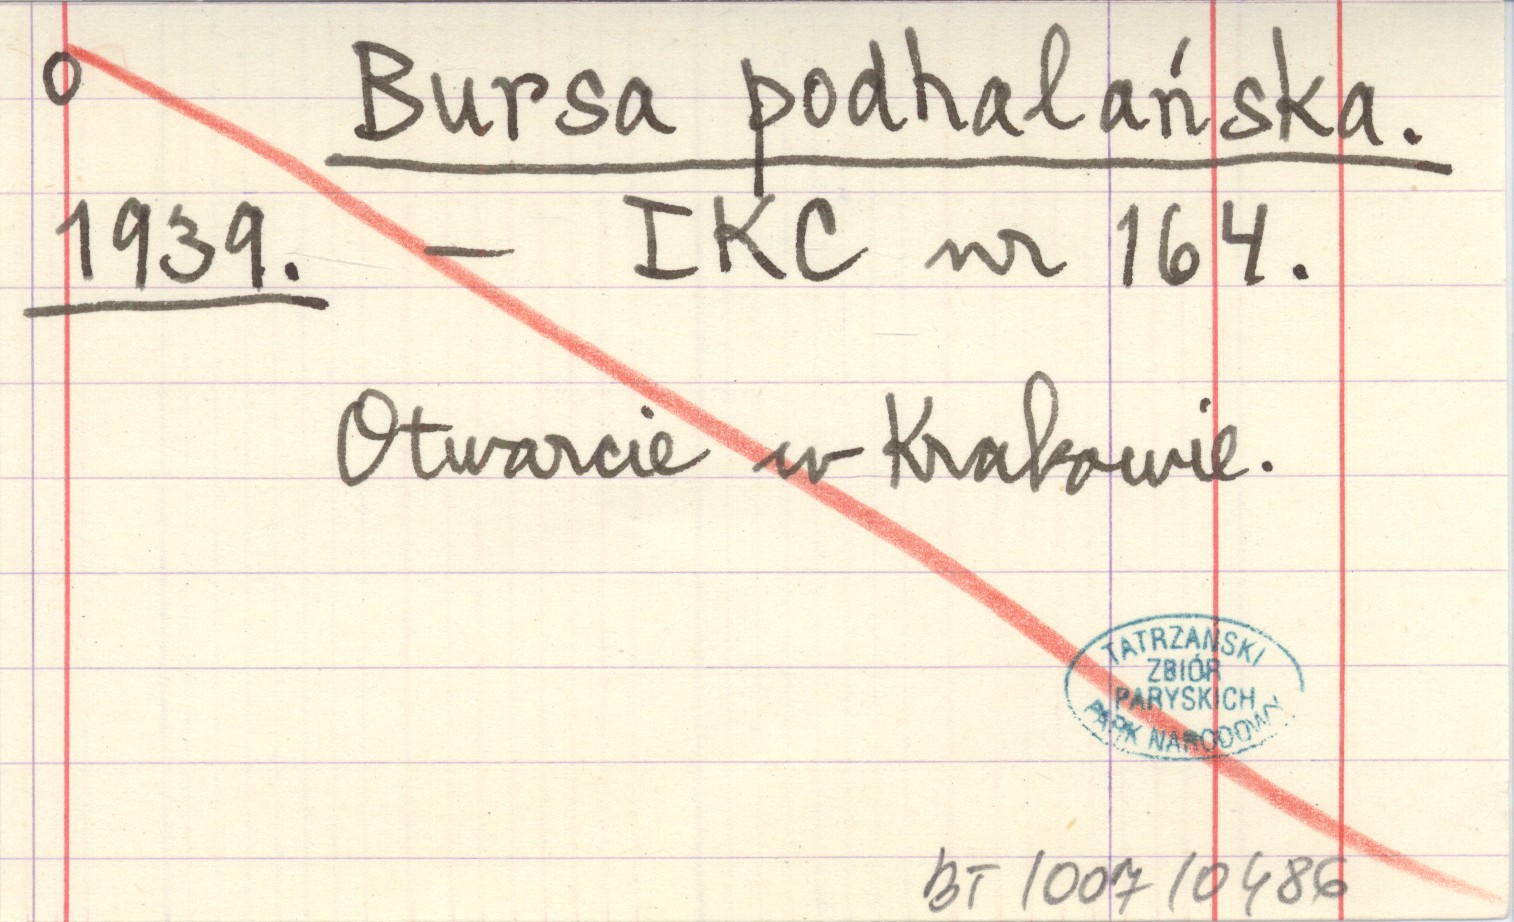 o Bursa podhalańska.
1939. — IKC nr 164.
Otwarcie w Krakowie.
TATRZAŃSKI
ZBIÓR
PARYSKICH
PARK NARODOWY
BT 1007 / 0486